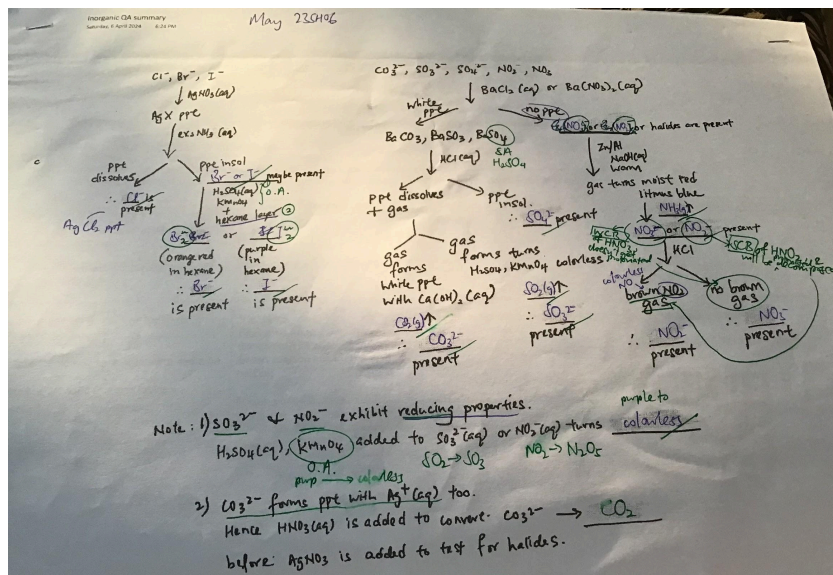 Inorganic QA summary
Saturday, 6 April 2024 8:24 PM
May 23SH06
Cl⁻, Br⁻, I⁻
AgNO3(aq)
AgX ppt
exs NH3 (aq)
ppt dissolves
∴ Cl⁻ is present
AgCl ppt
ppt insol
Br⁻ or I⁻ maybe present
H2SO4(aq)
KMnO4
O.A.
+
hexane layer
Br2 or I2
(orange red in hexane)
(purple in hexane)
∴ Br⁻ is present
∴ I⁻ is present
CO3²⁻, SO3²⁻, SO4²⁻, NO2⁻, NO3
BaCl2 (aq) or Ba(NO3)2 (aq)
white ppt
no ppt
BaCO3, BaSO3, BaSO4
SA
H2SO4
HCl(aq)
ppt dissolves + gas
ppt insol.
∴ SO4²⁻ present
gas forms white ppt with Ca(OH)2 (aq)
CO2(g)↑
∴ CO3²⁻ present
gas forms turns H2SO4, KMnO4 colorless
SO2(g)↑
∴ SO3²⁻ present
or halides are present
Zn/Al
NaOH(aq)
warm
gas turns moist red litmus blue
NH3(g)↑
NO2⁻ or NO3⁻ present
HCl
SCB of HNO2
colorless NO
brown NO2 gas
no brown gas
∴ NO2⁻ present
∴ NO3⁻ present
Note: 1) SO3²⁻ & NO2⁻ exhibit reducing properties.
H2SO4(aq), KMnO4 added to SO3²⁻(aq) or NO2⁻(aq) turns colorless
purple to
O.A.
purp → colorless
SO2 → SO3
NO2 → N2O5
2) CO3²⁻ forms ppt with Ag⁺(aq) too.
Hence HNO3(aq) is added to convert CO3²⁻ → CO2
before AgNO3 is added to test for halides.